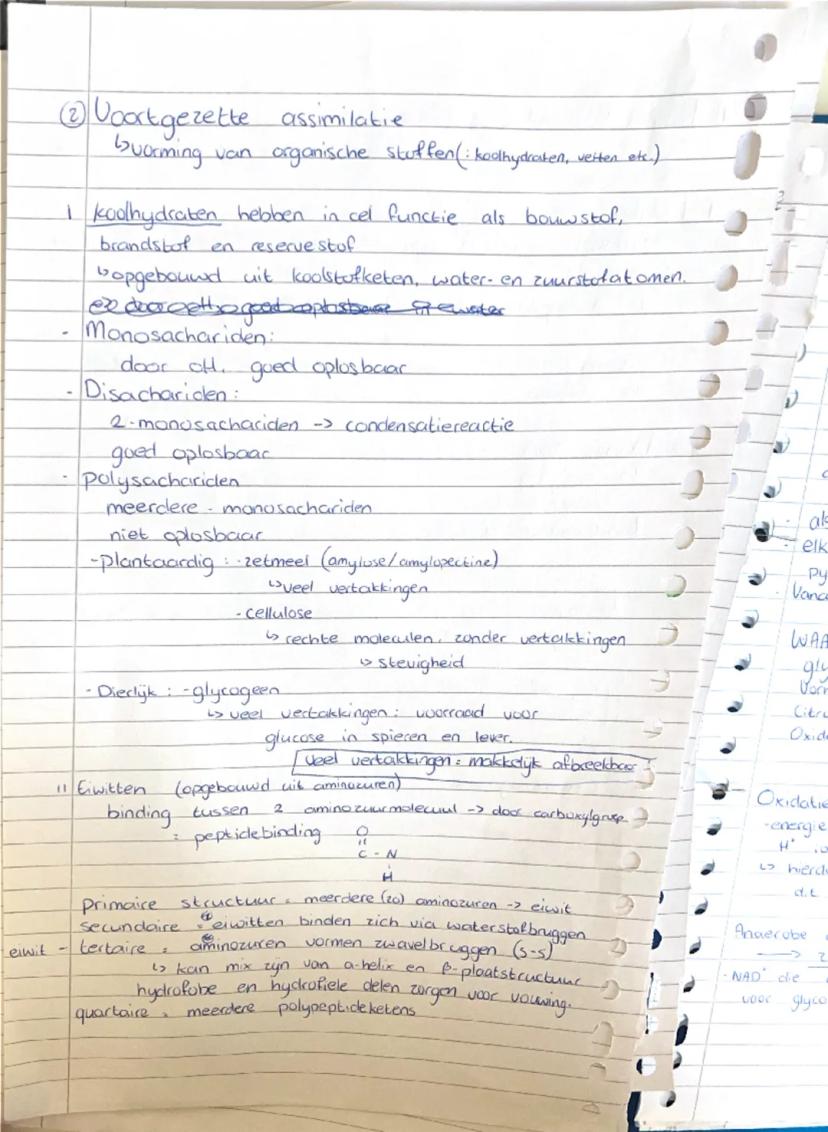 ② Voortgezette assimilatie
↳ vorming van organische stoffen (: koolhydraten, vetten etc.)
I koolhydraten hebben in cel functie als bouwstof,
brandstof en reservestof
↳ opgebouwd uit koolstofketen, water- en zuurstofatomen.
- Monosachariden:
door OH, goed oplosbaar
- Disachariden:
2-monosachariden -> condensatiereactie
goed oplosbaar
- polysachariden
meerdere - monosachariden
niet oplosbaar
- plantaardig : - zetmeel (amylose/amylopectine)
↳ veel vertakkingen
- cellulose
↳ rechte moleculen, zonder vertakkingen
↳ stevigheid
- Dierlijk : - glycogeen
↳ veel vertakkingen : voorraad voor
glucose in spieren en lever.
veel vertakkingen = makkelijk afbreekbaar !
II Eiwitten (opgebouwd uit aminozuren)
binding tussen 2 aminozuurmolecuul -> door carboxylgroep
= peptidebinding
O
C - N
H
primaire structuur = meerdere (20) aminozuren -> eiwit
secundaire = eiwitten binden zich via waterstofbruggen
eiwit - tertaire = aminozuren vormen zwavelbruggen (s-s)
↳ kan mix zijn van a-helix en β-plaatstructuur
hydrofobe en hydrofiele delen zorgen voor vouwing.
quartaire = meerdere polypeptideketens
als
elk
py
Vana
WAA
gly
Vorm
Citro
Oxid
Oxidatie
- energie
H⁺
↳ hierd
d.t
Anaerobe
-> 2
- NAD⁺ die
voor glyco